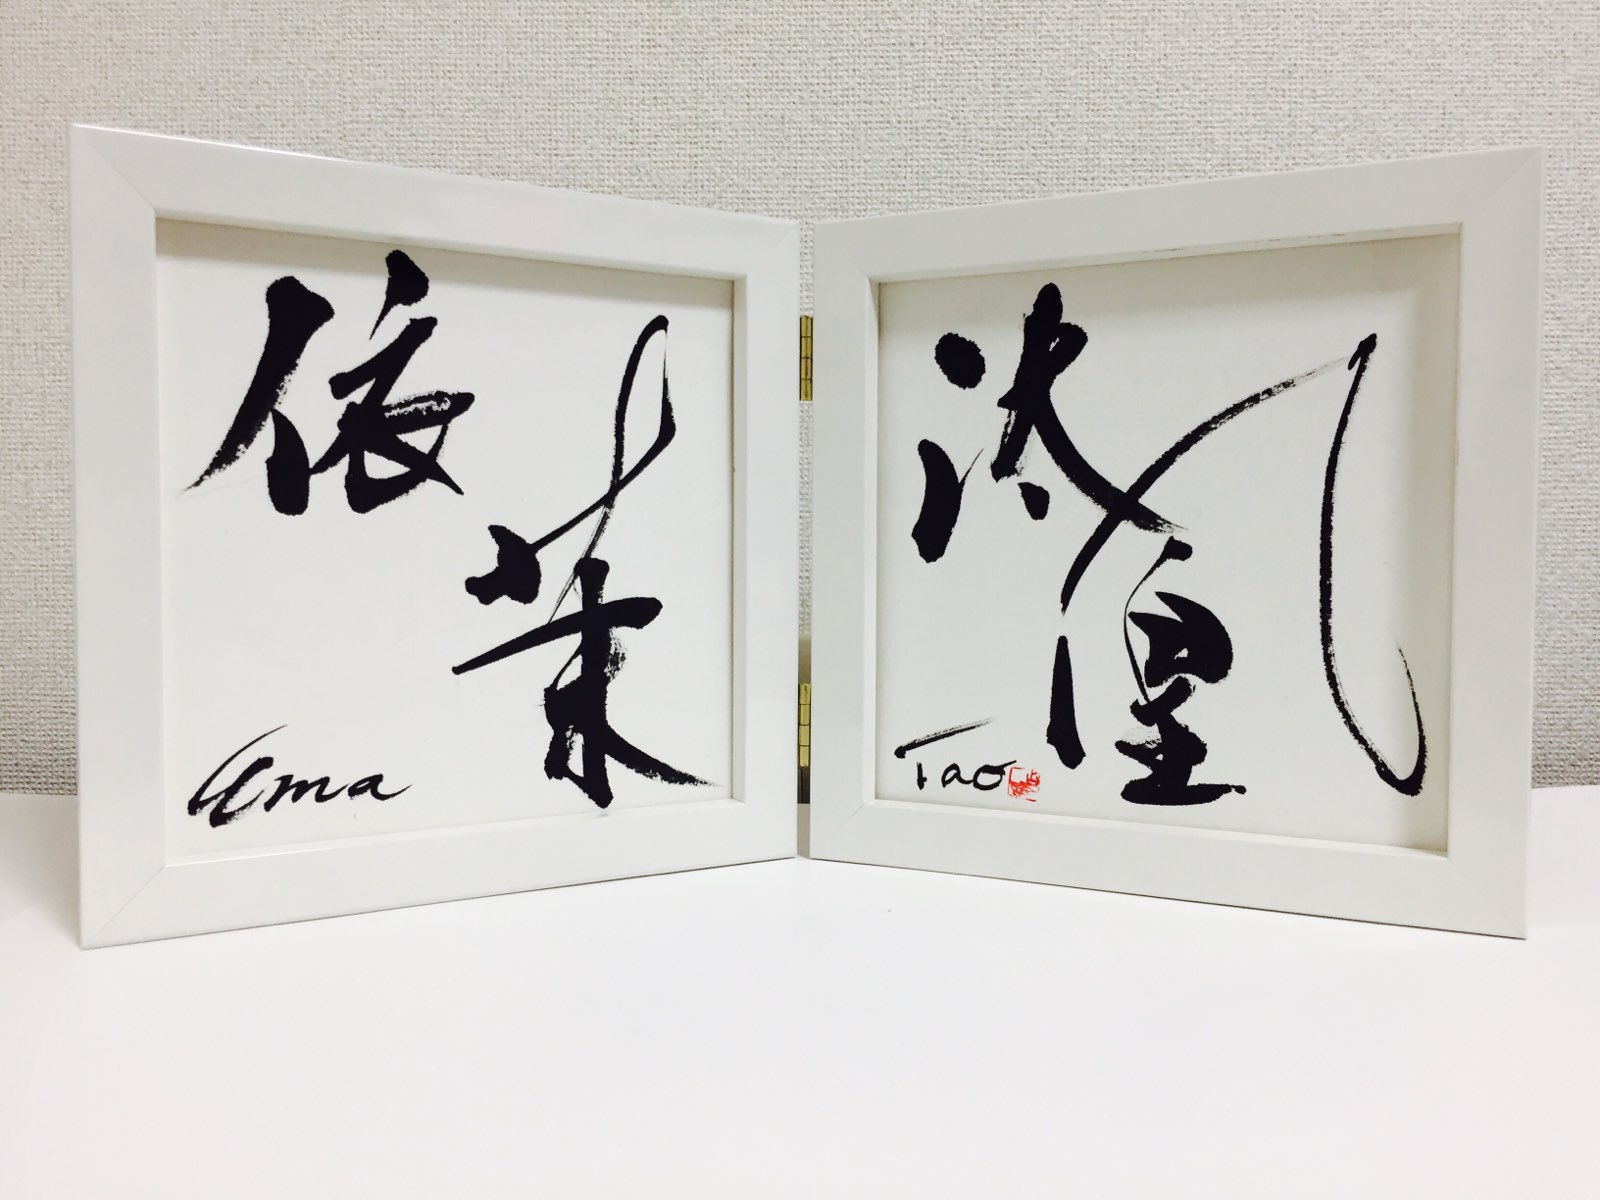 依茉
Ema
汰凰
Tao